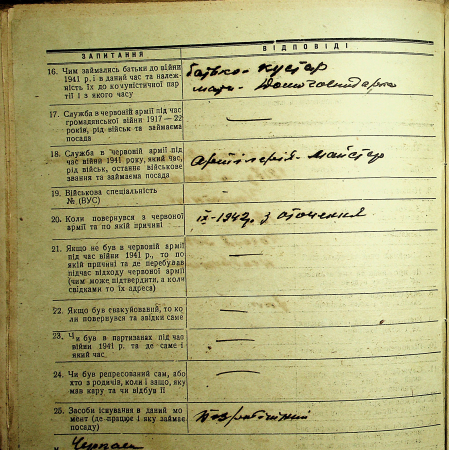 ЗАПИТАННЯ
ВІДПОВІДІ
16. Чим займались батьки до війни
1941 р. і в даний час та належ-
ність їх до комуністичної пар-
тії і з якого часу
батько - кустар
мати - Домогосподарка
17. Служба в червоній армії під час
громадянської війни 1917 — 22
років, рід військ та займаєма
посада
—
18. Служба в червоній армії під
час війни 1941 року, який час,
рід військ, останнє військове
звання та займаєма посада
Артілерія - майстер
19. Військова спеціальність
№ (ВУС)
–
20. Коли повернувся з червоної
армії та по якій причині
IX - 1942 р. з оточення
21. Якщо не був в червоній армії
під час війни 1941 р., то по
якій причині та де перебував
підчас відходу червоної армії
(чим може підтвердити, а коли
свідками то їх адреса)
—
22. Якщо був евакуйований, то ко-
ли повернувся та звідки саме
—
23. Чи був в партизанах під час
війни 1941 р. та де саме і
який час
—
24. Чи був репресований сам, або
хто з родичів, коли і защо, яку
мав кару та чи відбув її
—
25. Засоби існування в даний мо-
мент (де працює і яку займає
посаду)
Безробітний